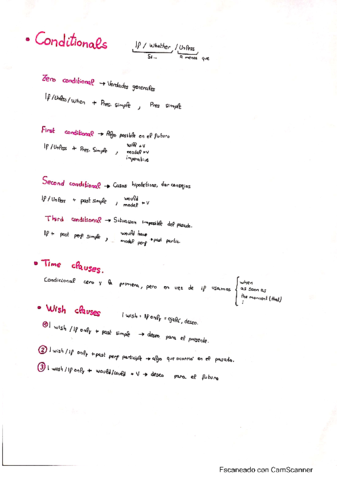 • Conditionals
If / Whether / Unless
Si... a menos que
Zero conditional → Verdades generales
If/Unless/when + Pres. simple , Pres simple
First conditional → Algo posible en el futuro
If/Unless + Pres. Simple , will + V
modal + V
imperative
Second conditional → Casos hipotéticos, dar consejos
If/Unless + past simple , would
modal + V
Third conditional → Situación imposible del pasado.
If + past perf simple , would have
modal perf + past partic.
• Time clauses.
Condicional cero y la primera, pero en vez de if usamos
when
as soon as
the moment (that)
:
• Wish clauses
I wish = If only = ojalá, deseo.
① I wish / If only + past simple → deseo para el presente.
② I wish / If only + past perf participle → algo que ocurrió en el pasado.
③ I wish / If only + would/could + V → deseo para el futuro
Escaneado con CamScanner